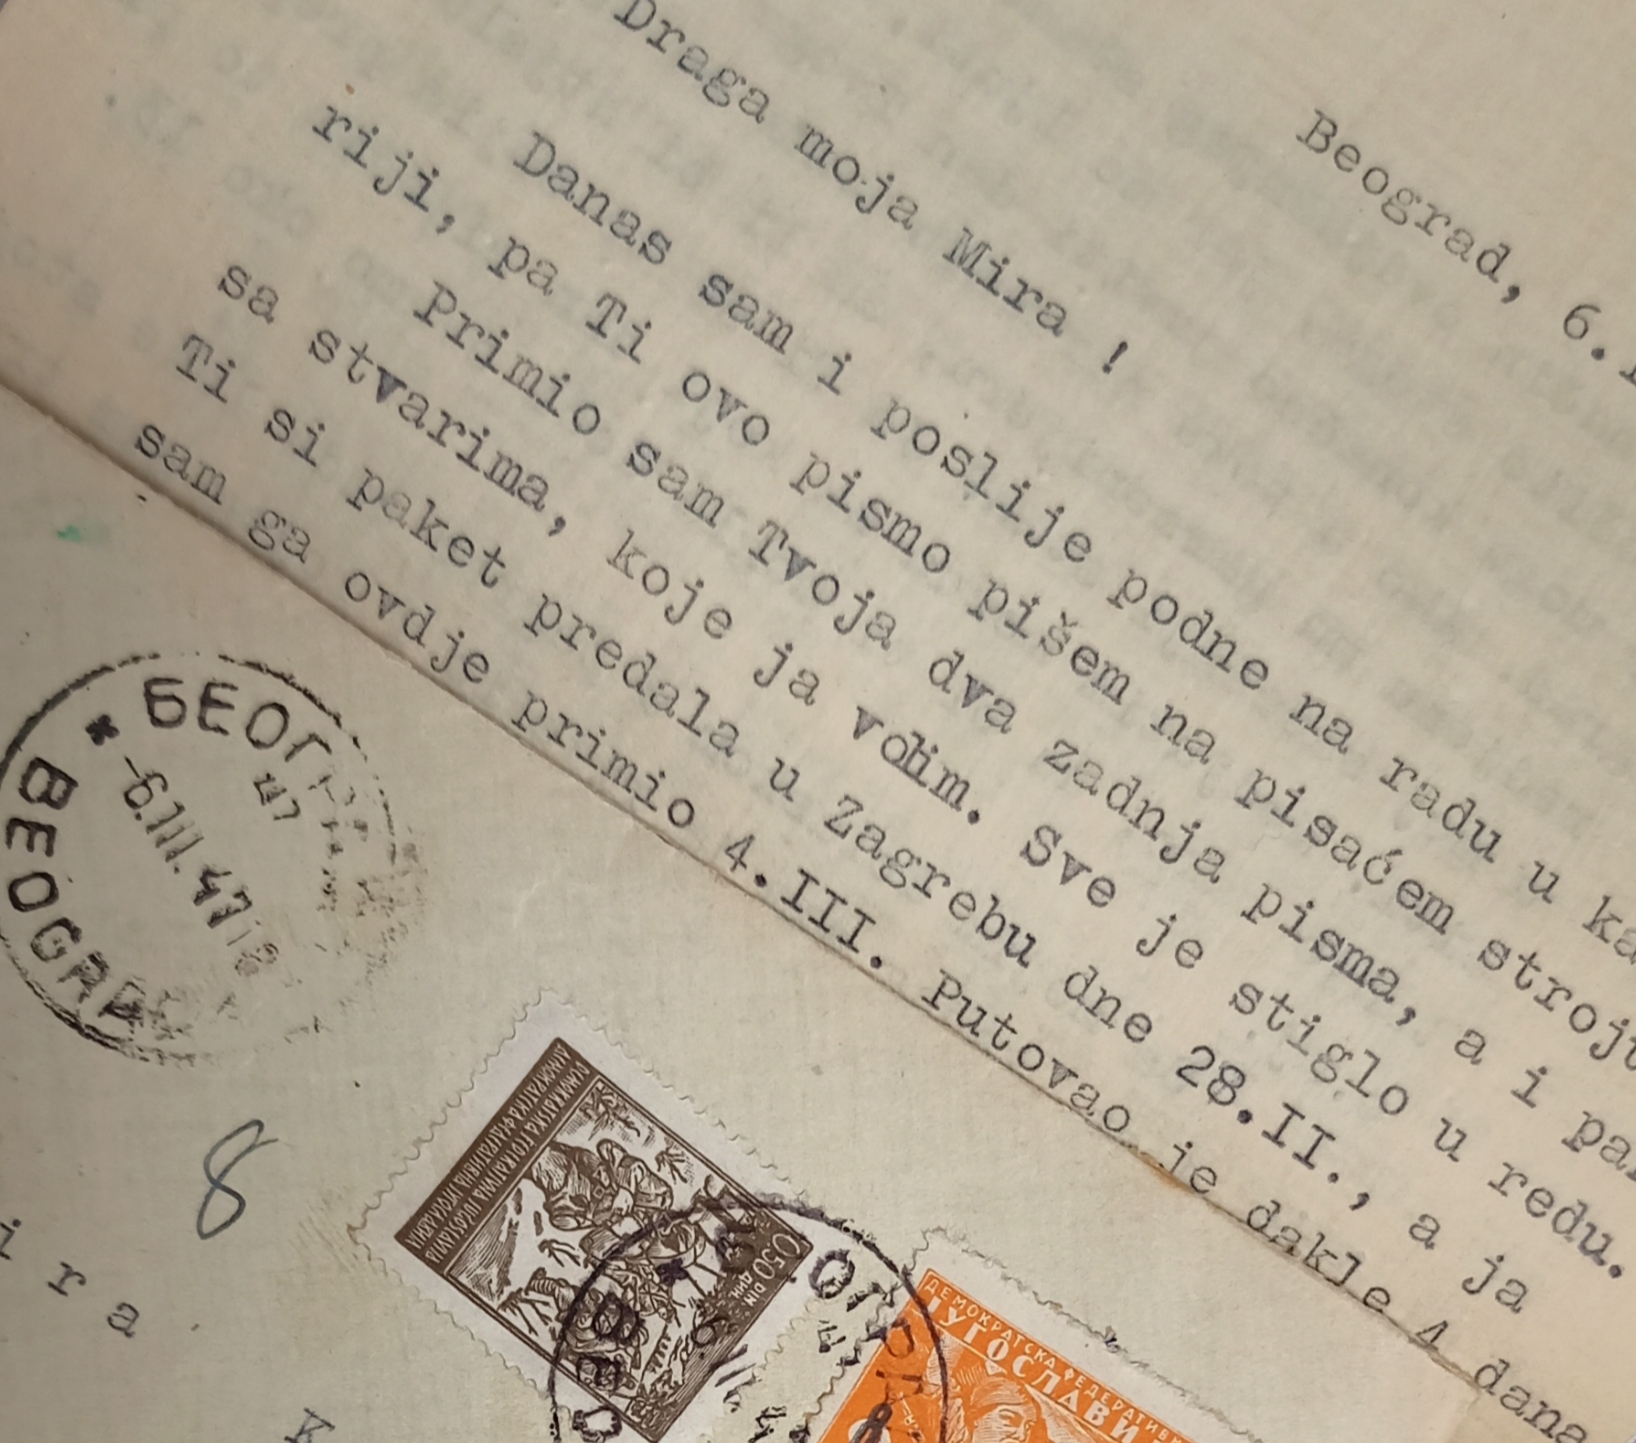 Beograd, 6.
Draga moja Mira !
Danas sam i poslije podne na radu u
riji, pa Ti ovo pismo pišem na pisaćem
Primio sam Tvoja dva zadnja pisma, a i
sa stvarima, koje ja volim. Sve je stiglo u redu.
Ti si paket predala u Zagrebu dne 28.II., a ja
sam ga ovdje primio 4.III. Putovao je dakle 4 dana
BEOGRA
-6.III.47
8
i r a
K
0.50 DIN
ДИН
ДЕМОКРАТСКА ФЕДЕРАТИВН
ЈУГОСЛАВИ